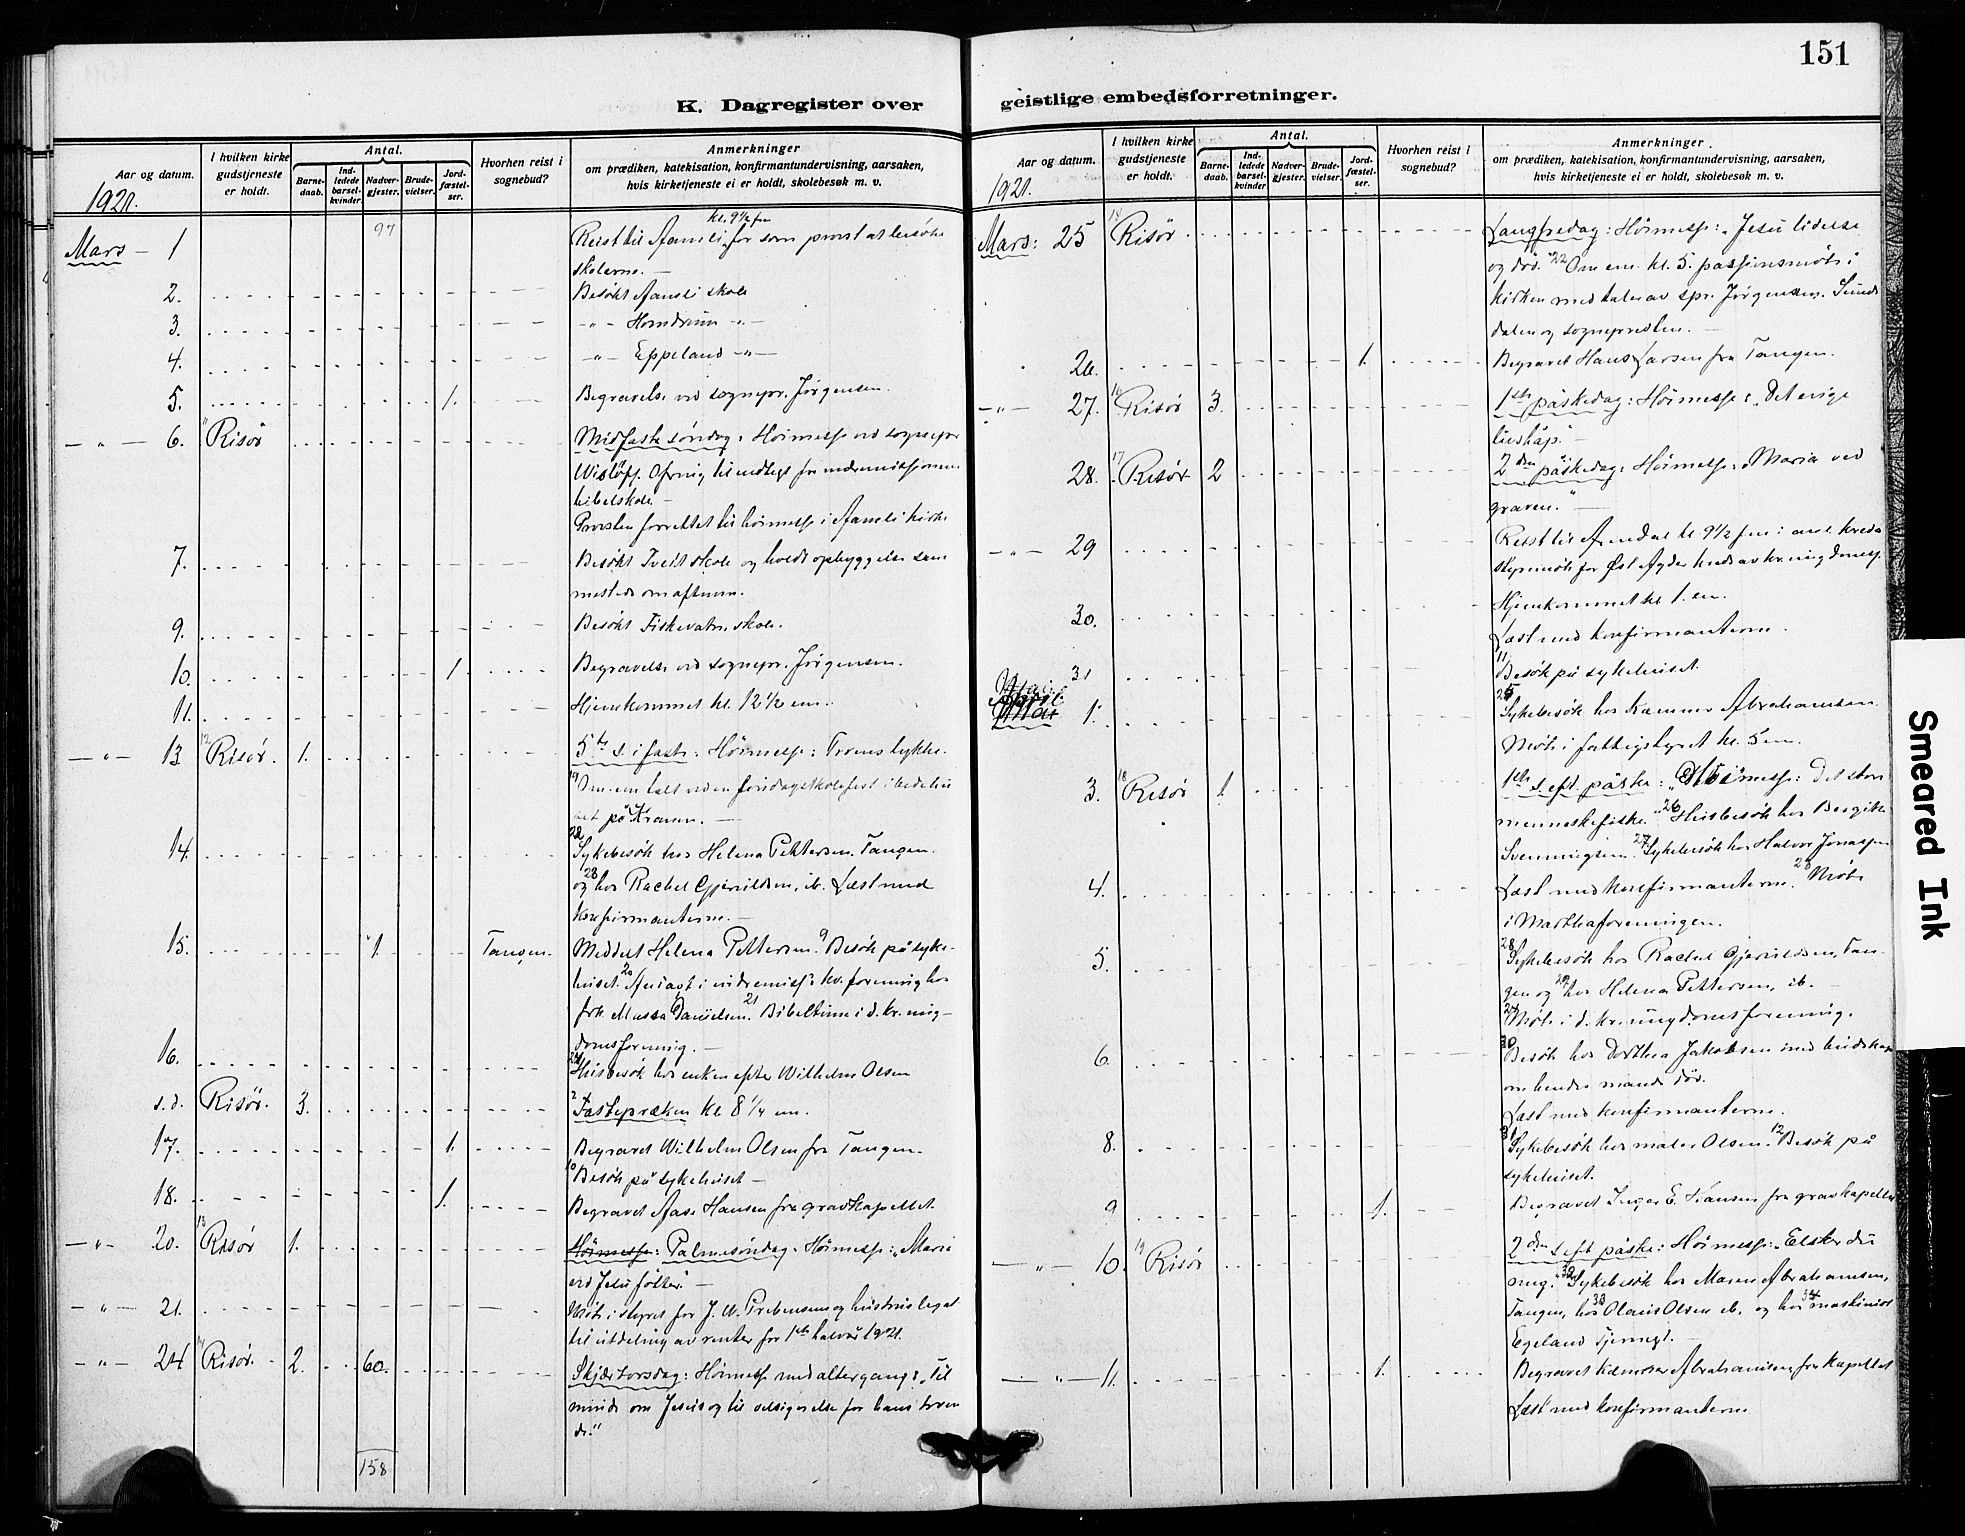 K. Dagregister over
Aar og datum.
I hvilken kirke gudstjeneste er holdt.
Antal.
Barne-daab.
Ind-ledede barsel-kvinder.
Nadver-gjester.
Brude-vielser.
Jord-fæstel-ser.
Hvorhen reist i sognebud?
Anmerkninger
om prædiken, katekisation, konfirmantundervisning, aarsaken,
hvis kirketjeneste ei er holdt, skolebesøk m. v.
1921.
97
kl. 9½ fm
Mars — 1 Reist til Åmli for som prost at besøke
skolerne. —
2. Besøkt Åmli skole
3. -"- Homdrum -"-
4. -"- Eppeland -"-
5. 1. Begravelse ved sognepr. Jørgensen.
-"- 6. Risør Midfaste søndag: Høimesse ved sognepr
Wisløff. Ofring til indtegt for indremissionens
bibelskole —
Provsten forrettet til høimesse i Åmli kirke
7. Besøkt Tveit skole og holdt opbyggelse sam
mesteds om aftenen.
9. Besøkt Fiskevatn skole.
10. 1 Begravelse ved sognepr. Jørgensen.
11. Hjemkommet kl. 12½ em.
-"- 13 12 Risør. 1. 5te s. i faste: Høimesse: Troens lykke.
19 Om em talt ved en søndagsskolefest i bedehu
set på Kranen. —
14. 22 Sykebesøk hos Helena Pettersen. Tangen.
og 23 hos Rachel Gjeruldsen, ib. Læst med
konfirmanterne. —
15. 1. Tangen. Meddelt Helena Pettersen. 9 Besøk på syke-
huset. 20 Andagt i indremiss. kv. forening hos
frk. Massa Danielsen. 21 Bibeltime i d. kr. ung-
domsforening. —
16. 24 Husbesøk hos enken efter Wilhelm Olsen
s.d. Risør. 3. 2 Fastepræken kl. 8¼ em.
17. 1. Begravet Wilhelm Olsen fra Tangen.
10 Besøk på sykehuset —
18. 1. Begravet Aase Hansen fra gravkapellet.
-"- 20. 13 Risør 1. Høimesse: Palmesøndag: Høimesse: "Maria
ved Jesu føtter." —
-"- 21. Møte i styret for J. W. Prebensens og hustrus legat
til utdeling av renter for 1ste halvår 1921.
-"- 24 14 Risør. 2. 60. Skjærtorsdag: Høimesse med altergang: "Til
minde om Jesus og til velsignelse for hans troen
de."
158
151
geistlige embedsforretninger.
Aar og datum.
I hvilken kirke gudstjeneste er holdt.
Antal.
Barne-daab.
Ind-ledede barsel-kvinder
Nadver-gjester.
Brude-vielser.
Jord-fæstel-ser.
Hvorhen reist i sognebud?
Anmerkninger.
om prædiken, katekisation, konfirmantundervisning, aarsaken,
hvis kirketjeneste ei er holdt, skolebesøk m. v.
1921.
Mars: 25 Risør Langfredag: Høimesse: "Jesu lidelse
og død." 22 Om em. kl. 5. passionsmøte i
kirken med taler av spr. Jørgensen. Sunde
dalen og sognepresten. —
26. 1. Begravet Hans Larsen fra Tangen.
-"- 27. 16 Risør 3. 1ste påskedag: Høimesse: "Det evige
livshåp." —
28. 17 Risør 2 2den påskedag: Høimesse: "Maria ved
graven." —
-"- 29 Reist til Arendal kl 9½ fm i anl. kreds
styremøte for Øst Agder kreds av kr. ungdomsf.
30. Hjemkommet kl 1. em.
Læst med konfirmanterne.
31 11 Besøk på sykehuset.
April 1. 25 Sykebesøk hos Abrahamsen.
Møte i fattigstyret kl. 5 em.
3. 18 Risør 1 1ste s. eft. påske: Høimesse: Det store
menneskefiske." 26 Husbesøk hos Bergitte
Svenningsen. 27 Sykebesøk hos Halvor Jonassen
4. Læst med konfirmanterne. 23 Møte
i Marthaforeningen.
5. 28 Sykebesøk hos Rachel Gjeruldsen, Tan-
gen og 29 hos Helena Pettersen, ib. —
24 Møte i d. kr. ungdomsforening.
6. 30 Besøk hos Dorthea Jakobsen med budskap
om hendes mands død.
Læst med konfirmanterne.
8. 31 Sykebesøk hos maler Olsen. 12 Besøk på
sykehuset.
9 1. Begravet Inger E. Hansen fra gravkapellet
-"- 10. 19 Risør 2den s. eft påske: Høimesse: "Elsker du
mig." 32 Sykebesøk hos Maren Abrahamsen,
Tangen, hos 33 Olaus Olsen ib. og hos 34 maskinist
Egeland Tjenngt. —
-"- 11. 1. Begravet Abrahamsen fra kapellet
Læst med konfirmanterne
Smeared Ink